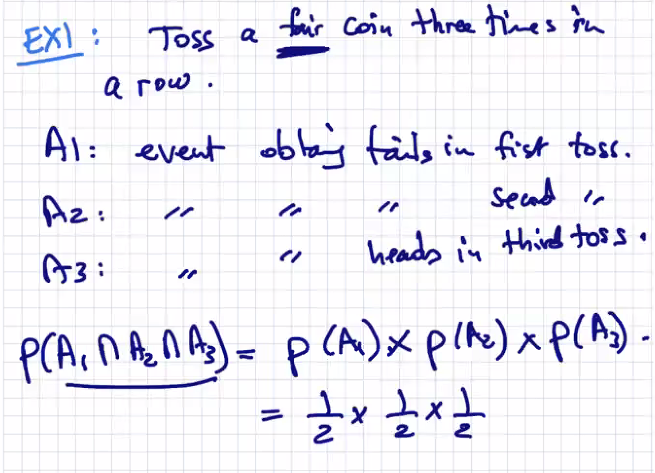 EX1 : Toss a fair coin three times in
a row.
A1: event obtaig tails in first toss.
A2: " " " second "
A3: " " heads in third toss.
P(A₁ ∩ A₂ ∩ A₃) = P(A₁) × P(A₂) × P(A₃).
= 1/2 × 1/2 × 1/2